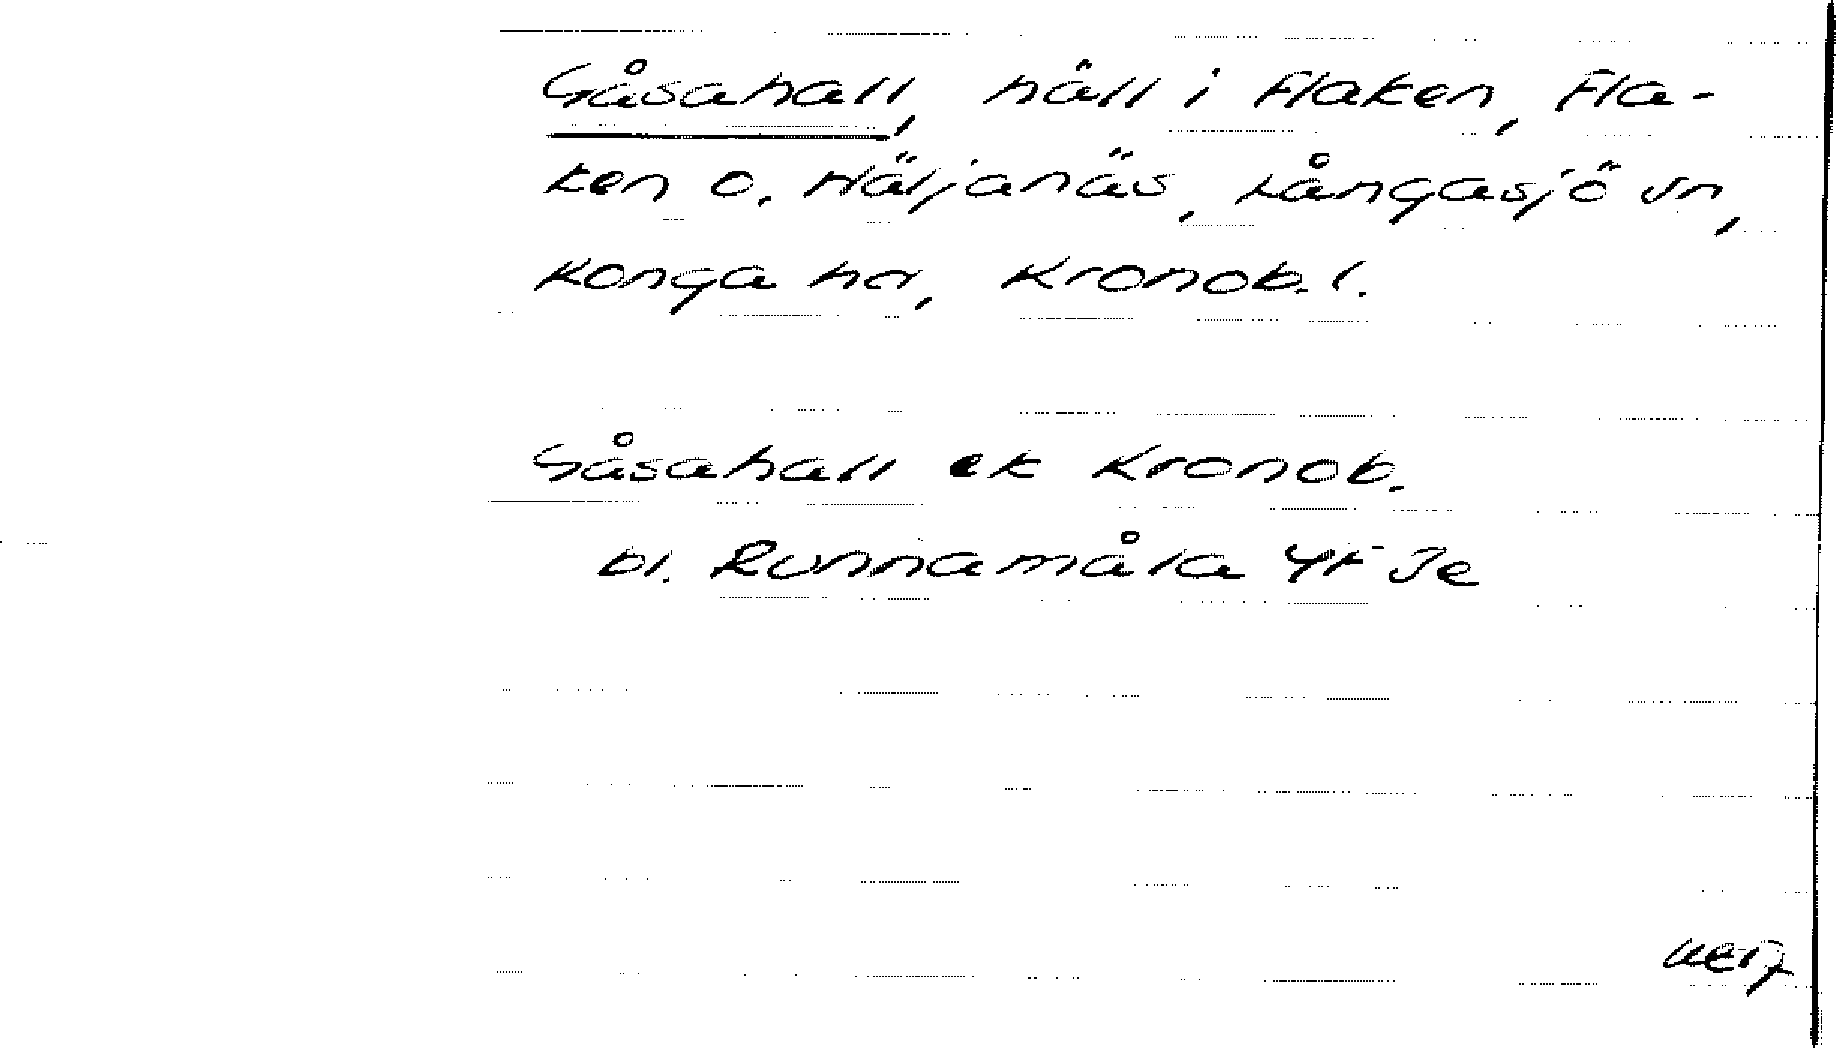 Gåsahall, häll i Flaken, Fla-
ken o. Häljanäs, Långasjö sn,
Konga hd, Kronob. l.
Gåsahall ek Kronob.
bl. Runnamåla 4F Je